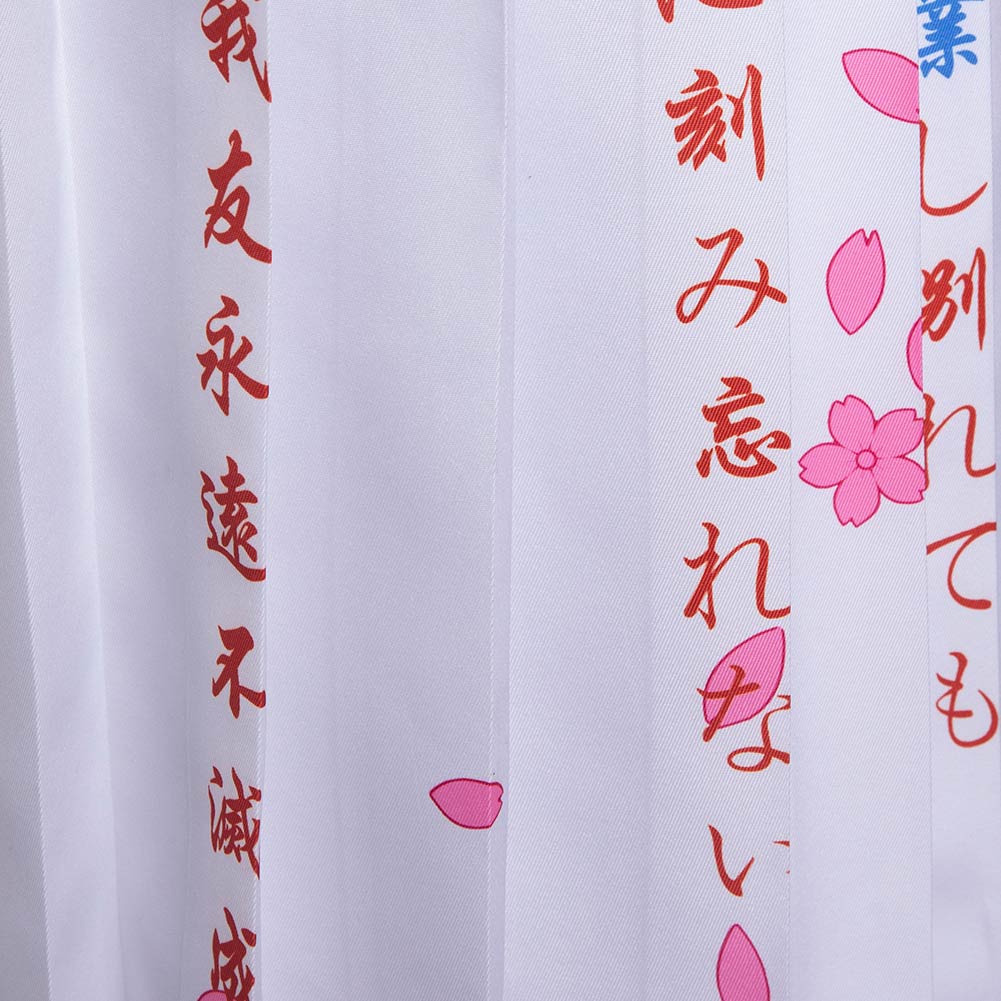 業
し別れても
刻み忘れない
我友永遠不滅